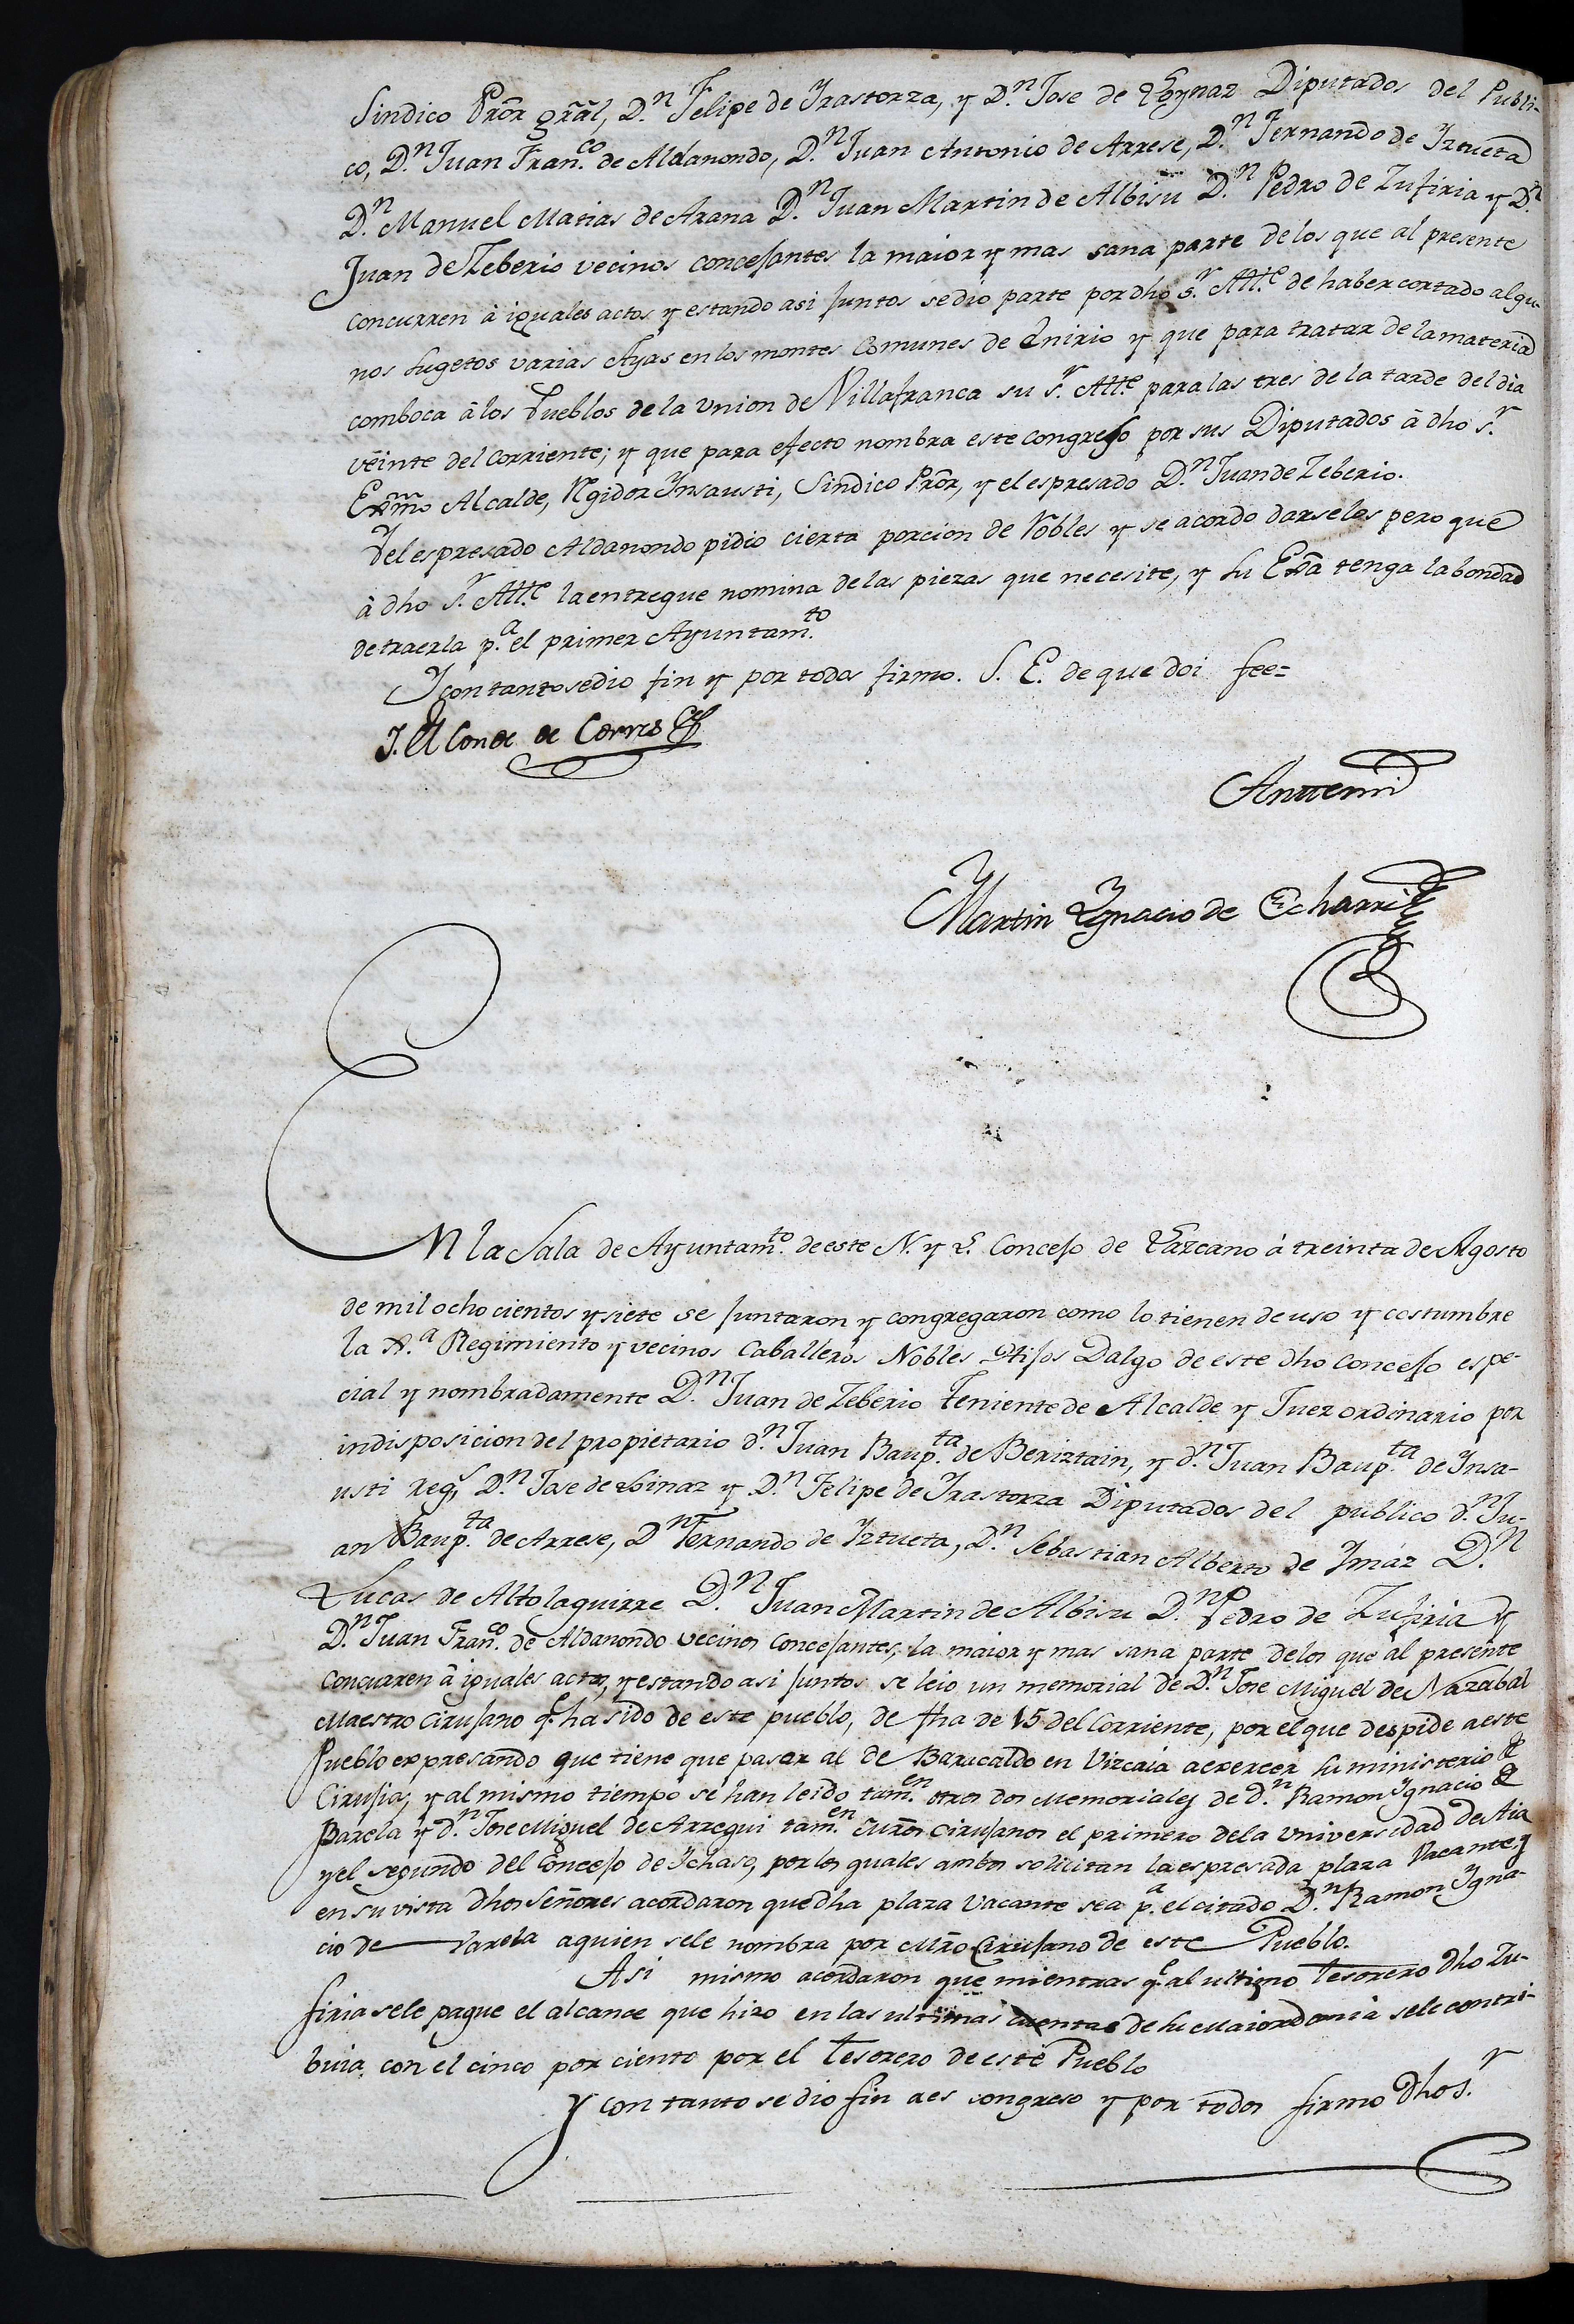 Sindico Prõr grãl, D.n Felipe de Yrastorza, y D.n Jose de Loynaz Diputados del Publi-
co, D.n Juan Fran.co de Aldanondo, D.n Juan Antonio de Arrese, D.n Fernando de Yztueta
D.n Manuel Matias de Arana D.n Juan Martin de Albisu D.n Pedro de Zufiria y D.n
Juan de Zeberio vecinos concejantes la maior y mas sana parte de los que al presente
concurren à iguales actos y estando asi juntos se dio parte por dho s.r Att.e de haber cortado algu-
nos sugetos varias Ayas en los montes Comunes de Enirio y que para tratar de la materia
comboca à los Pueblos de la Union de Villafranca su s.r Att.e para las tres de la tarde del dia
veinte del corriente; y que para efecto nombra este congreso por sus Diputados à dho s.r
Exmõ Alcalde, Rgidor Ynsausti, Sindico Prõr, y el espresado D.n Juan de Zeberio.
Y el espresado Aldanondo pidio cierta porcion de Robles y se acordo darselas pero que
à dho s.r Att.e la entregue nomina de las piezas que necesite, y su Exã tenga la bondad
de traerla p.a el primer Ayuntam.to
Y con tanto se dio fin y por todos firmo. S. E. de que doi fee=
J. El Conde de
Antemi
Martin Ygnacio de Echarri
En la Sala de Ayuntam.to de este N. y L. Concejo de Lazcano à treinta de Agosto
de mil ocho cientos y siete se juntaron y congregaron como lo tienen de uso y costumbre
la Regimiento y vecinos Caballeros Nobles Hijos Dalgo de este dho concejo espe-
cial y nombradamente D.n Juan de Zeberio Teniente de Alcalde y Juez ordinario por
indisposicion del propietario d.n Juan Baup.ta de Beriztain, y d.n Juan Baup.ta de Ynsa-
usti Reg.r D.n Jose de Loinaz y D.n Felipe de Yrastorza Diputados del publico d.n Ju-
an Baup.ta de Arrese, D.n Fernando de Yztueta, D.n Sebastian Alberto de Ymáz D.n
Lucas de Altolaguirre D.n Juan Martin de Albisu D.n Pedro de Zufiria y
D.n Juan Fran.co de Aldanondo vecinos concejantes, la maior y mas sana parte de los que al presente
concurren à iguales actos, y estando asi juntos se leio un memorial de D.n Jose Miguel de Nazabal
Maestro Cirujano q.e ha sido de este pueblo, de fha de 15 del Corriente, por el que despide a este
Pueblo expresando que tiene que pasar al de Baracaldo en Vizcaia a exercer su ministerio de
Cirujia, y al mismo tiempo se han leido tam.en otros dos Memoriales de d.n Ramon Ygnacio de
Barela y d.n Jose Miguel de Arregui tam.en Mrõs Cirujanos el primero de la Universidad de Aia
y el segundo del Concejo de Ychaso, por los quales ambos solicitan la espresada plaza Vacante, y
en su vista dhos Señores acordaron que dha plaza vacante sea p.a el citado D.n Ramon Ygna-
cio de Varela a quien se le nombra por Mrõ Cirujano de este Pueblo.
Asi mismo acordaron que mientras q.e al ultimo Tesorero dho Zu-
firia se le pague el alcance que hizo en las ultimas cuentas de su Maiordomia se le contri-
buia con el cinco por ciento por el Tesorero de este Pueblo
Y con tanto se dio fin a es congreso y por todos firmo dho s.r